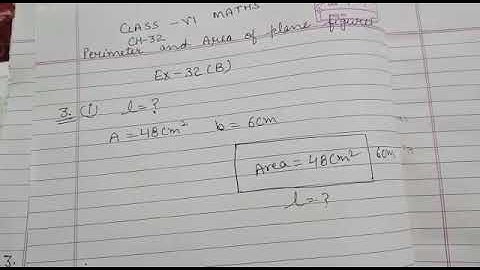 CLASS - VI MATHS
CH-32
Perimeter and Area of plane figures
Ex-32(B)
3. (i) l = ?
A = 48cm² b = 6cm
Area = 48cm² 6cm
l = ?
3.